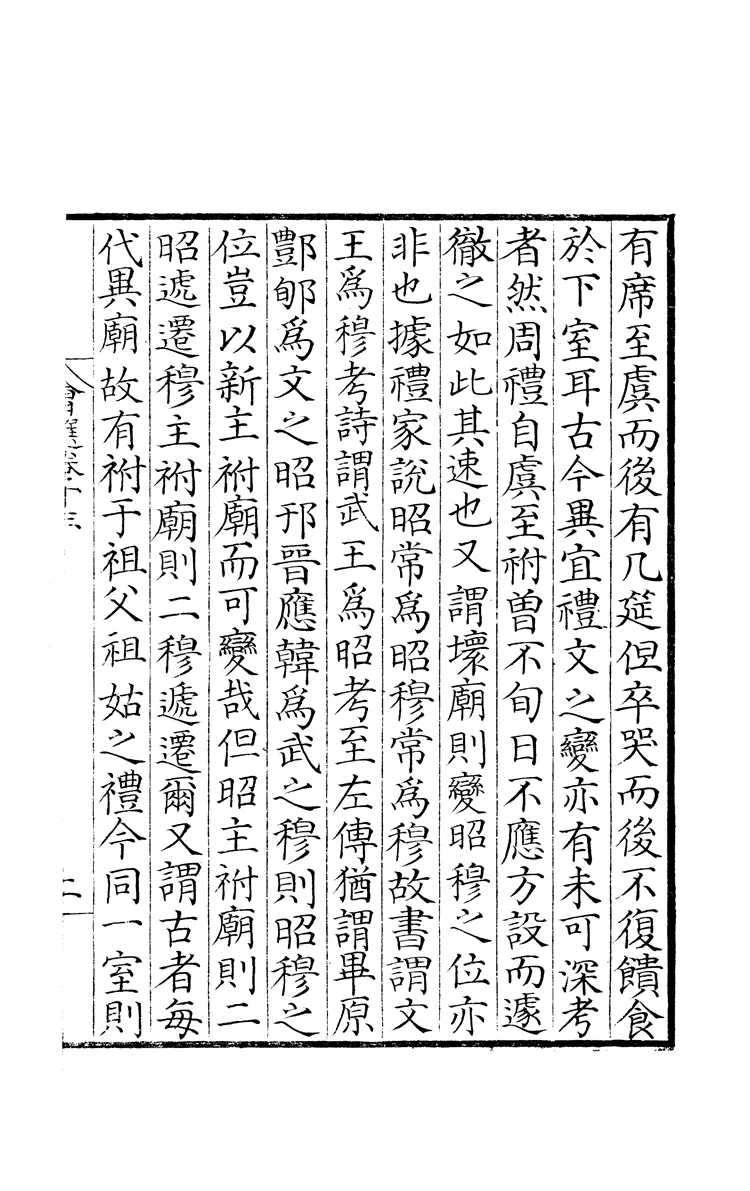 有席至虞而後有几筵但卒哭而後不復饋食
於下室耳古今異宜禮文之變亦有未可深考
者然周禮自虞至祔曽不旬日不應方設而遽
徹之如此其速也又謂壊廟則變昭穆之位亦
非也據禮家說昭常爲昭穆常爲穆故書謂文
王爲穆考詩謂武王爲昭考至左傳猶謂畢原
酆郇爲文之昭邘晉應韓爲武之穆則昭穆之
位豈以新主祔廟而可變哉但昭主祔廟則二
昭遞遷穆主祔廟則二穆遞遷爾又謂古者每
代異廟故有祔于祖父祖姑之禮今同一室則